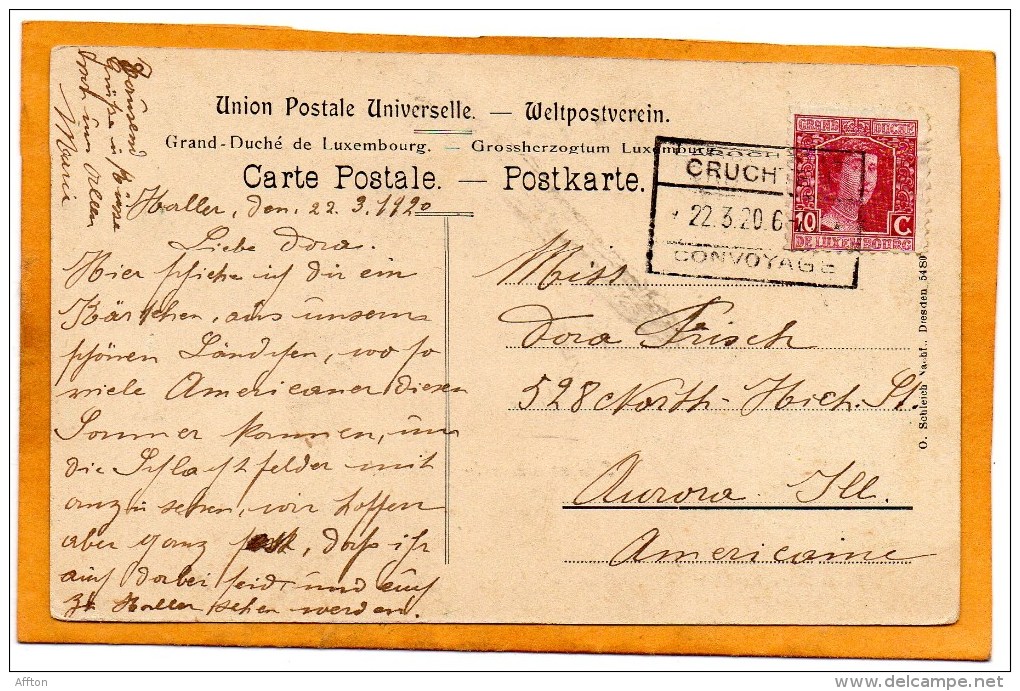 Union Postale Universelle. — Weltpostverein.
Grand-Duché de Luxembourg. — Grossherzogtum Luxemburg
Carte Postale. — Postkarte.
Haller, den. 22. 3. 1920
Liebe Dora.
Hier schicke ich dir ein
Kärtchen, aus unserm
schönen Ländchen, wo so
viele Americaner diesen
Sommer kommen, um
die Schlachtfelder mit
anzusehen, wir hoffen
aber ganz fest, dass ihr
auch dabei seid und euch
zu Haller sehen werden.
Tausend
Grüße u. Küsse
von uns Allen
Marie
CRUCHT
22.3.20.6-
CONVOYAGE
GRAND DUCHÉ
10 C
DE LUXEMBOURG
Miss
Dora Frisch
528 North-High. St.
Aurora Ill.
Americaine
O. Schleich Nachf., Dresden 5480
Affton
delcampe.net